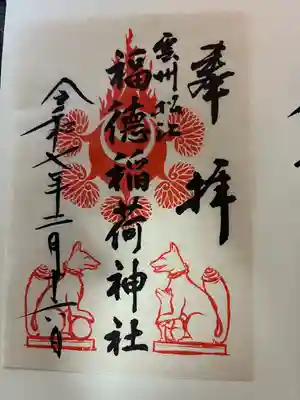 奉拝
雲州松江
福徳稲荷神社
令和八年二月十六日